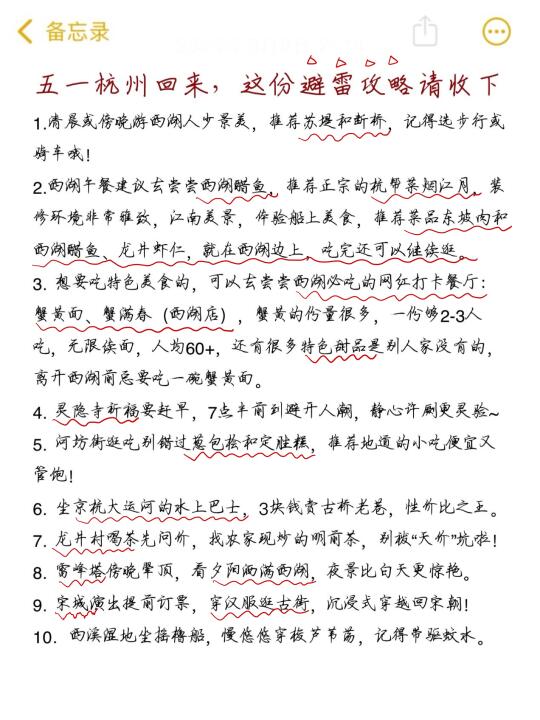 备忘录
五一杭州回来，这份避雷攻略请收下
1.清晨或傍晚游西湖人少景美，推荐苏堤和断桥，记得选步行或
骑车哦！
2.西湖午餐建议去尝尝西湖醋鱼，推荐正宗的杭帮菜烟江月，装
修环境非常雅致，江南美景，体验船上美食，推荐菜品东坡肉和
西湖醋鱼、龙井虾仁，就在西湖边上，吃完还可以继续逛。
3. 想要吃特色美食的，可以去尝尝西湖必吃的网红打卡餐厅：
蟹黄面、蟹满春（西湖店），蟹黄的份量很多，一份够2-3人
吃，无限续面，人均60+，还有很多特色甜品是别人家没有的，
离开西湖前忌要吃一碗蟹黄面。
4. 灵隐寺祈福要赶早，7点半前到避开人潮，静心许愿更灵验~
5. 河坊街逛吃别错过葱包桧和定胜糕，推荐地道的小吃便宜又
管饱！
6. 坐京杭大运河的水上巴士，3块钱赏古桥老巷，性价比之王。
7. 龙井村喝茶先问价，找农家现炒的明前茶，别被“天价”坑啦！
8. 雷峰塔傍晚登顶，看夕阳洒满西湖，夜景比白天更惊艳。
9. 宋城演出提前订票，穿汉服逛古街，沉浸式穿越回宋朝！
10. 西溪湿地坐摇橹船，慢悠悠穿梭芦苇荡，记得带驱蚊水。